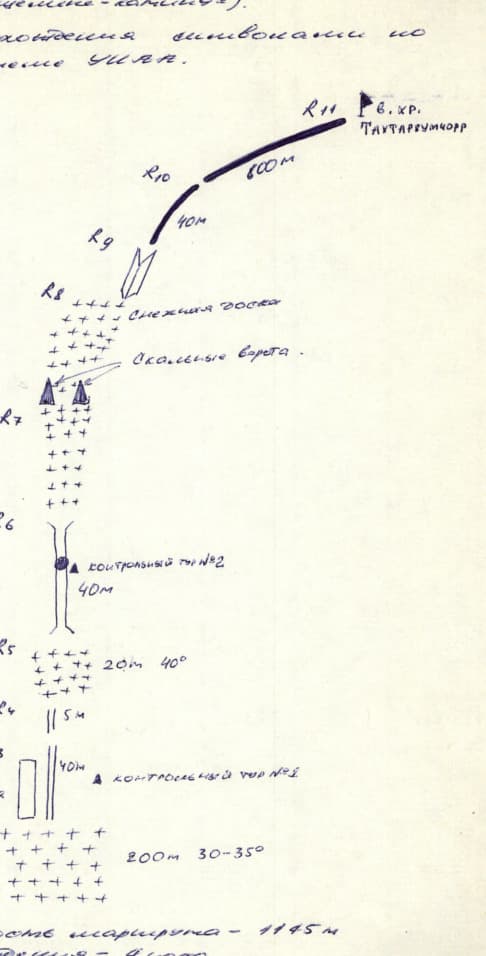 хождения символами по
схеме УИАА.
R11 в. хр.
Тахтарвумчорр
R10 600м
40м
R9
R8
Снежная доска
Скальные ворота.
R7
R6
▲ контрольный тур №2
40м
R5
20м 40°
R4
5м
3
40м
▲ контрольный тур №1
200м 30-35°
ость маршрута - 1145м